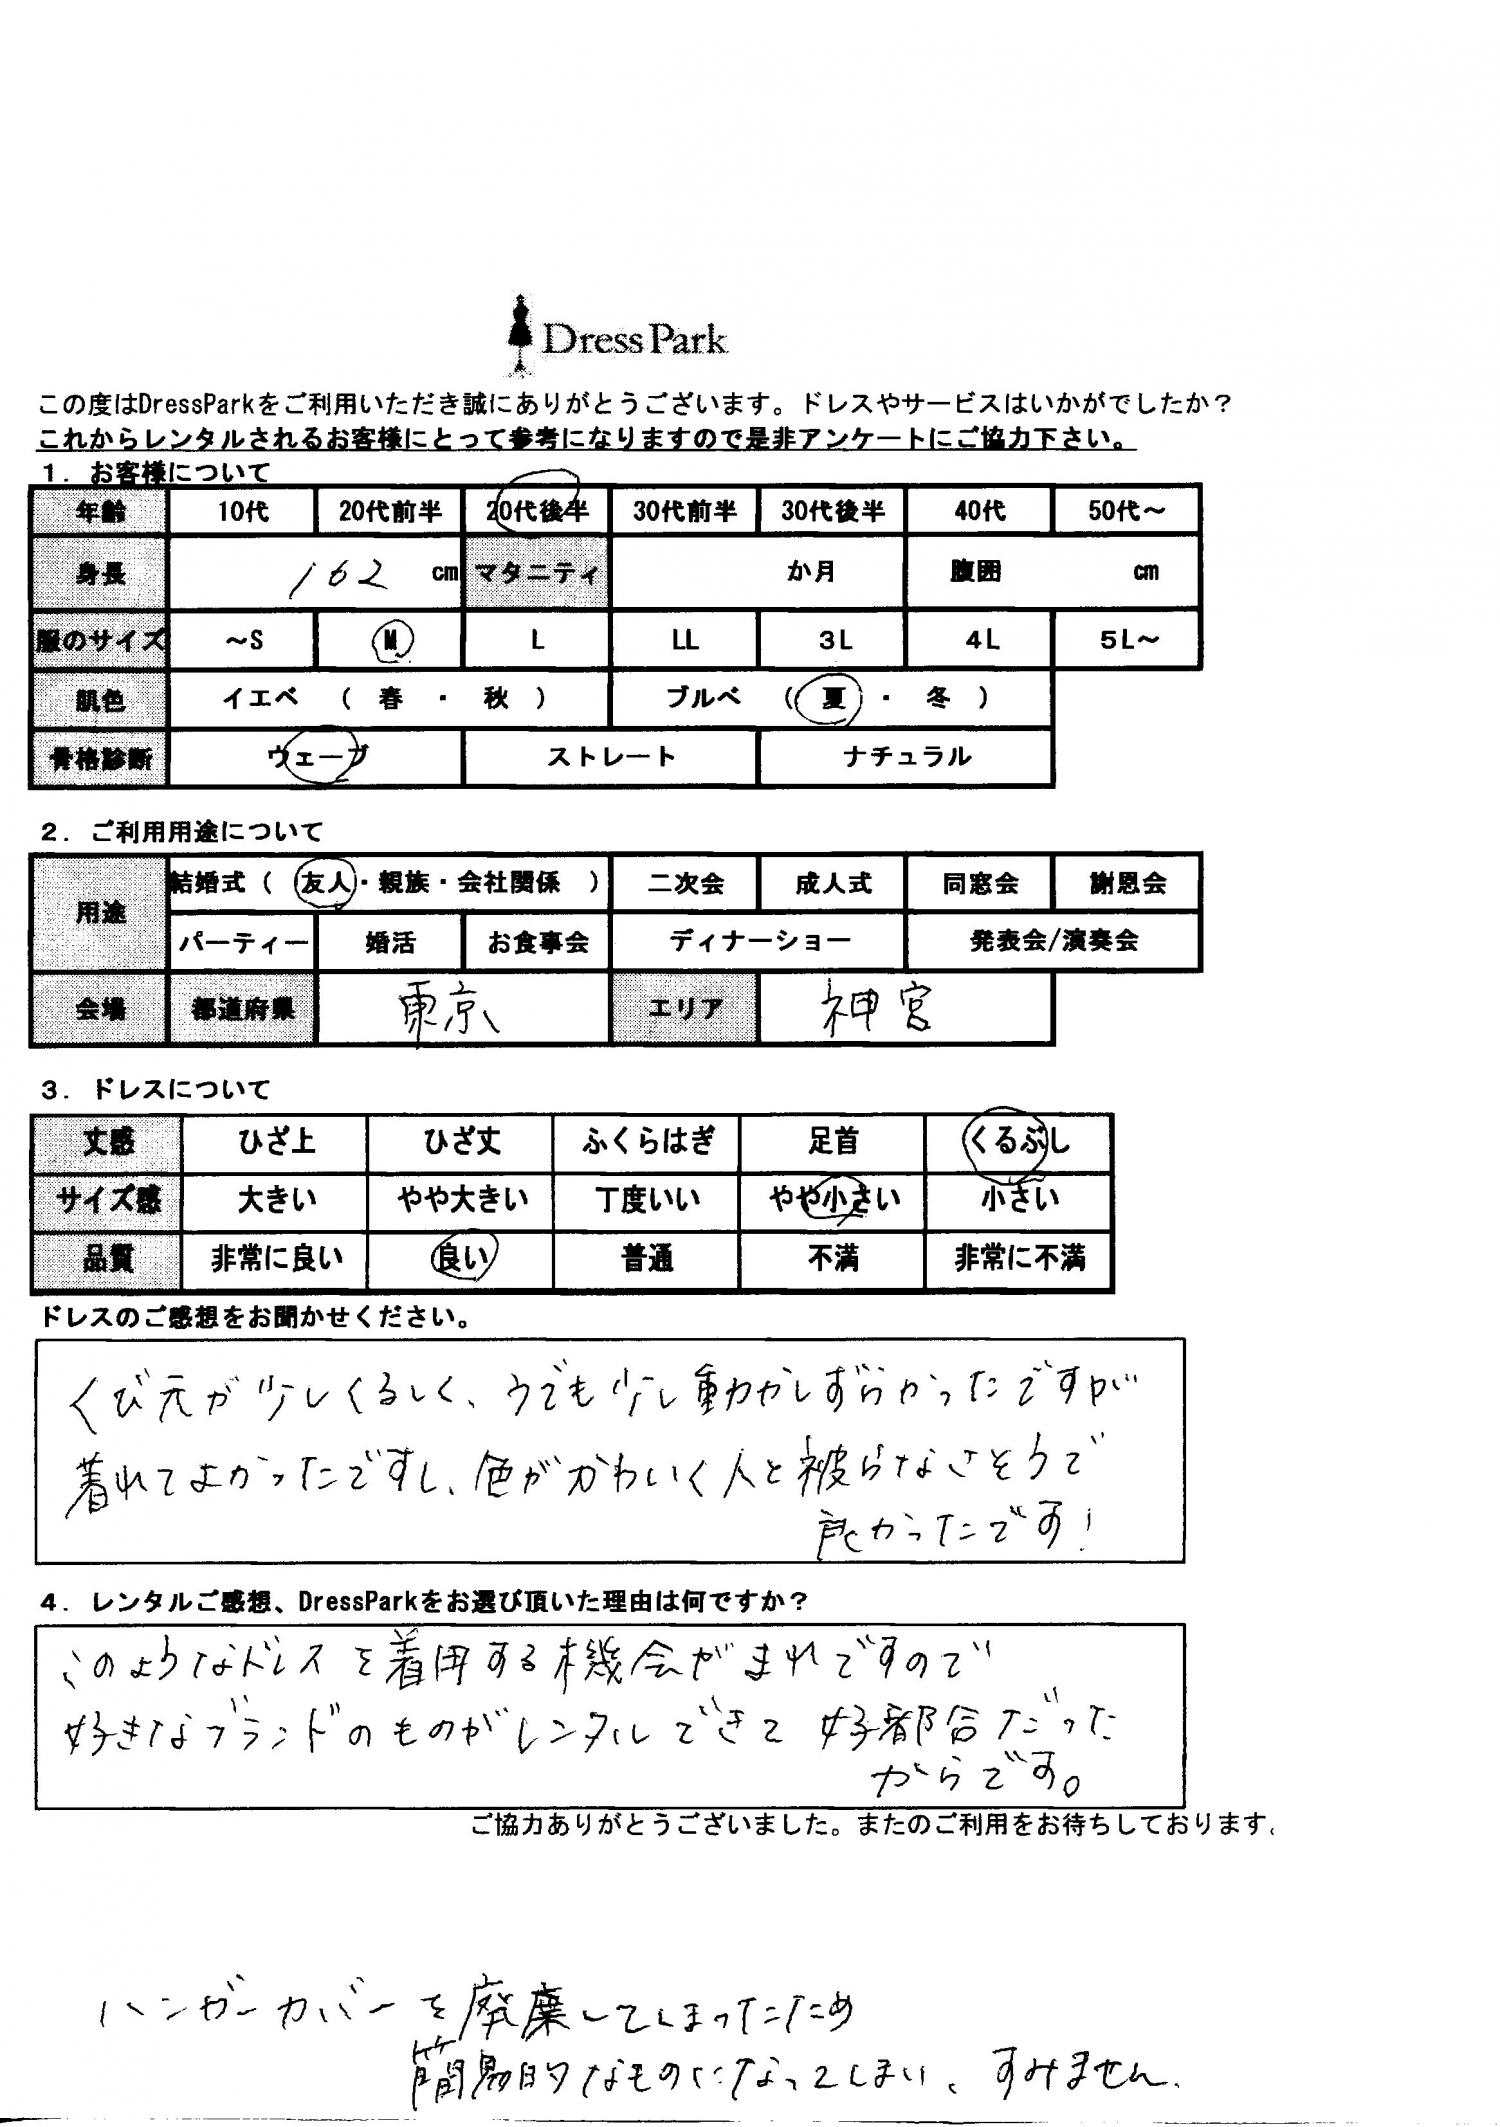 Dress Park
この度はDressParkをご利用いただき誠にありがとうございます。ドレスやサービスはいかがでしたか？
これからレンタルされるお客様にとって参考になりますので是非アンケートにご協力下さい。
１．お客様について
年齢 10代 20代前半 20代後半 30代前半 30代後半 40代 50代～
身長 162 cm マタニティ か月 腹囲 cm
服のサイズ ～S M L LL 3L 4L 5L～
肌色 イエベ （ 春 ・ 秋 ） ブルベ （ 夏 ・ 冬 ）
骨格診断 ウェーブ ストレート ナチュラル
２．ご利用用途について
用途 結婚式（ 友人・親族・会社関係 ） 二次会 成人式 同窓会 謝恩会
パーティー 婚活 お食事会 ディナーショー 発表会/演奏会
会場 都道府県 東京 エリア 神宮
３．ドレスについて
丈感 ひざ上 ひざ丈 ふくらはぎ 足首 くるぶし
サイズ感 大きい やや大きい 丁度いい やや小さい 小さい
品質 非常に良い 良い 普通 不満 非常に不満
ドレスのご感想をお聞かせください。
くび元が少しくるしく、うでも少し動かしずらかったですが
着れてよかったですし、色がかわいく人と被らなさそうで
良かったです！
４．レンタルご感想、DressParkをお選び頂いた理由は何ですか？
このようなドレスを着用する機会がまれですので
好きなブランドのものがレンタルできて好都合だった
からです。
ご協力ありがとうございました。またのご利用をお待ちしております。
ハンガーカバーを廃棄してしまったため
簡易的なものになってしまい、すみません。